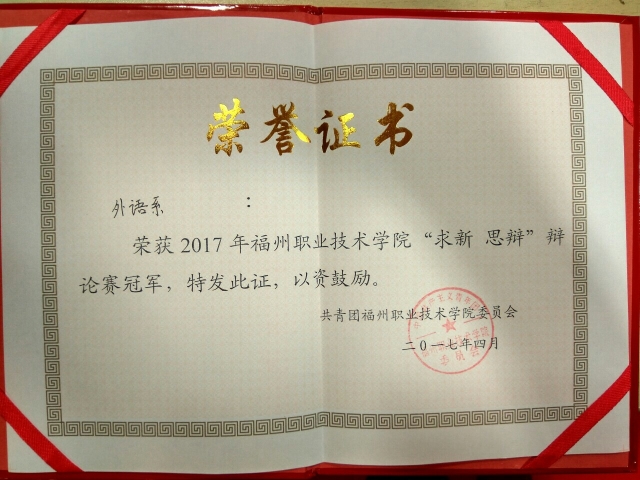 荣誉证书
外语系：
荣获2017年福州职业技术学院“求新 思辩”辩
论赛冠军，特发此证，以资鼓励。
共青团福州职业技术学院委员会
二〇一七年四月